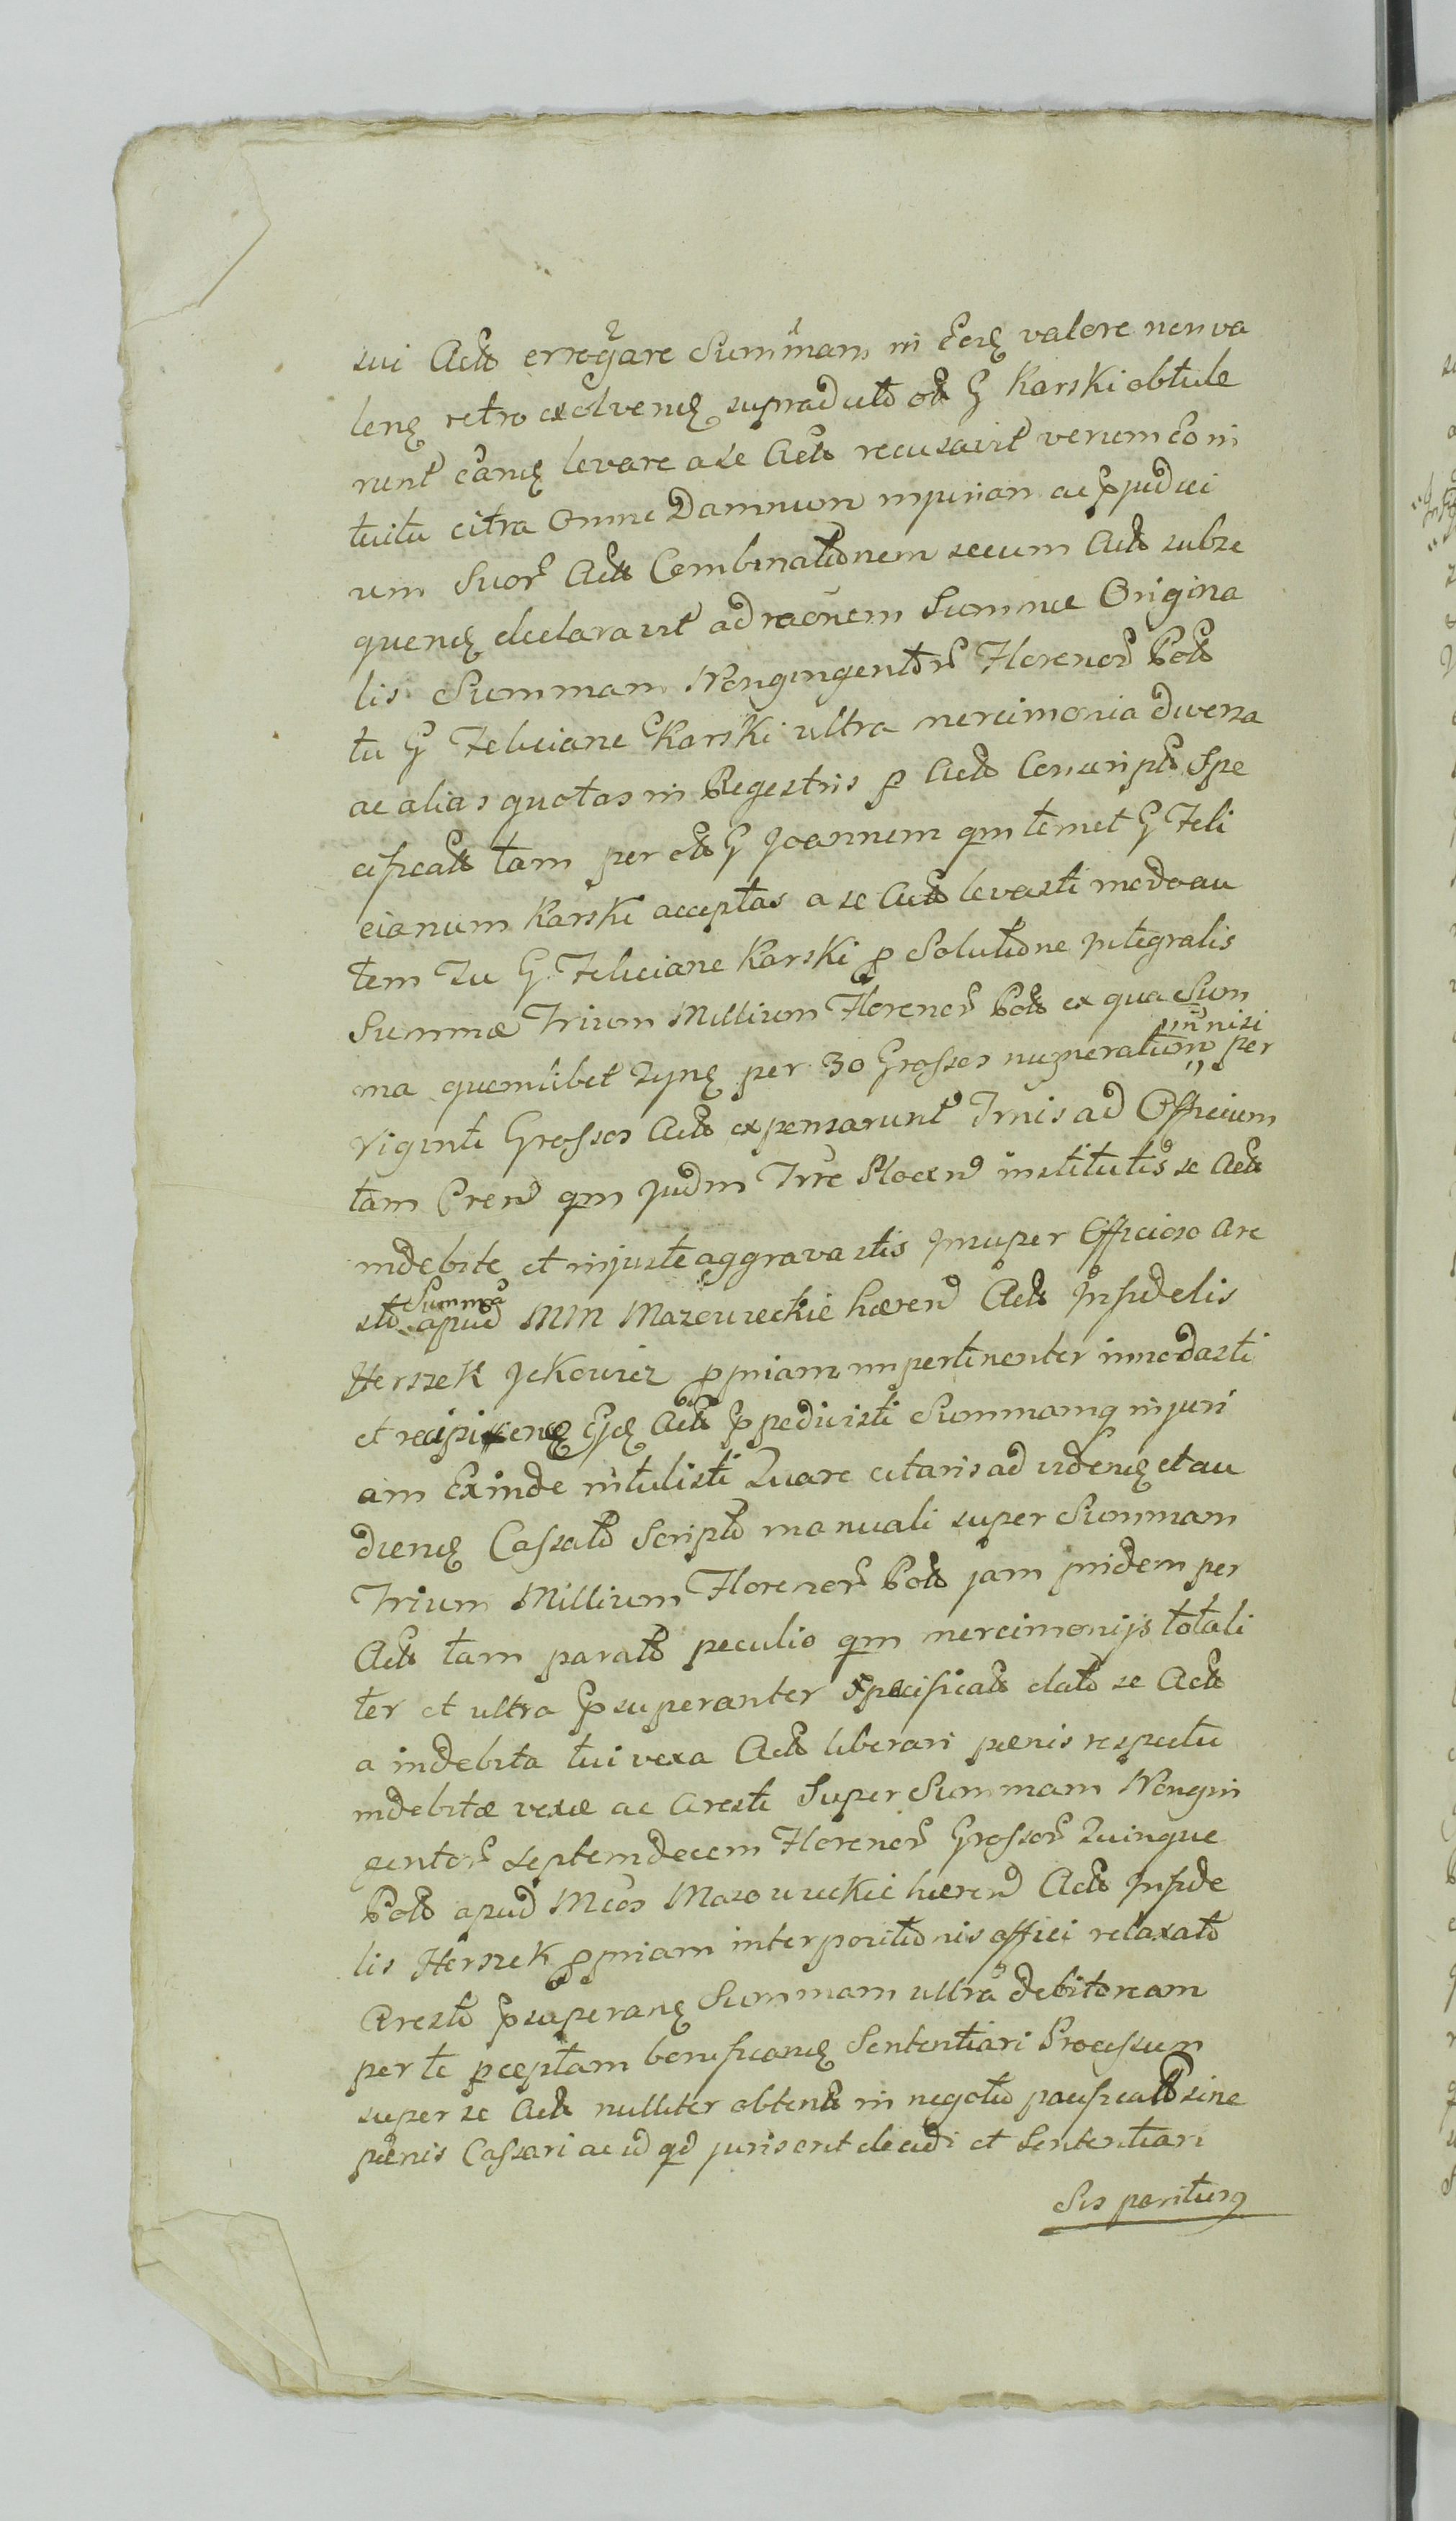 sui Actŏ errogare Summam in Eoq valore nonva
lenq retro exolvenq supradicto olt G Karski obtule
runt eanq levare a se Actŏ recusavit verum eo in
tuitu citra omne Damnum injuriam ac ppjudici
um Suor Actŏ Combinationem secum Actŏ subse
quenq declaravit ad raonem Summæ Origina
lis Summam Nongingentor Florenor Polŏ
tu G Feliciane Karski ultra mercimonia diversa
ac alias quotas in Regestris p Actŏ Conscripto Spe
cificatŏ tam per oltŏ G Joannem qm temet G Feli
cianum Karski acceptas a se Actŏ levasti modo au
tem Tu G Feliciane Karski p Solutione Integralis
Summæ Trium Millium Florenor Polŏ ex qua Sum
ma quemlibet Tynq per 30 Grossos numeratum nisi per
Viginti Grossos Actŏ expensarunt Trnis ad Officium
tam Cren qm Judm Trre Plocen institutis se Actŏ
indebite et injuste aggravastis Insuper Officioso Are
sto Summa apud MM Mazowieckie hæren Actŏ Infidelis
Herszek Jckowicz ppriam impertinenter innodasti
et Ejq Actŏ ppedivisti Summamq injuri
am Exinde intulisti Quare citaris ad videnq et au
dienq Cassato Scripto manuali super Summam
Trium Millium Florenor Polŏ jam pridem per
Actŏ tam parato peculio qm mercimonijs totali
ter et ultra ppsuperanter Specificatŏ dato se Actŏ
a indebita tui vexa Actŏ liberari pænis respectu
indebitæ vexæ ac Aresti Super Summam Nongin
gentor Septemdecem Florenor Grossor Quinque
Polŏ apud Mcos Mazowieckie hæren Actŏ Infide
lis Herszek ppriam interpositionis affici relaxato
Aresto ppsuperanq Summam ultra debitoream
per te pceptam bonificanq Sententiari Processum
super se Actŏ nulliter obtentŏ in negotio pacificato sine
pænis Cassari ac id qd juris erit decidi et Sententiari
Sis pariturq